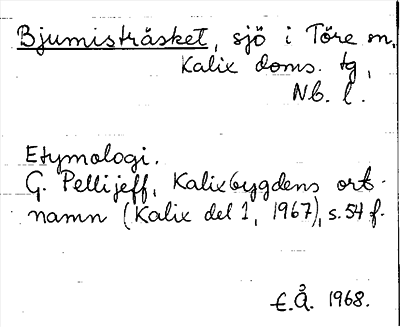 Bjumisträsket, sjö i Töre sn,
Kalix doms. tg,
Nb. l.
Etymologi.
G. Pellijeff, Kalixbygdens ort-
namn (Kalix del 1, 1967), s. 54 f.
E.Å. 1968.